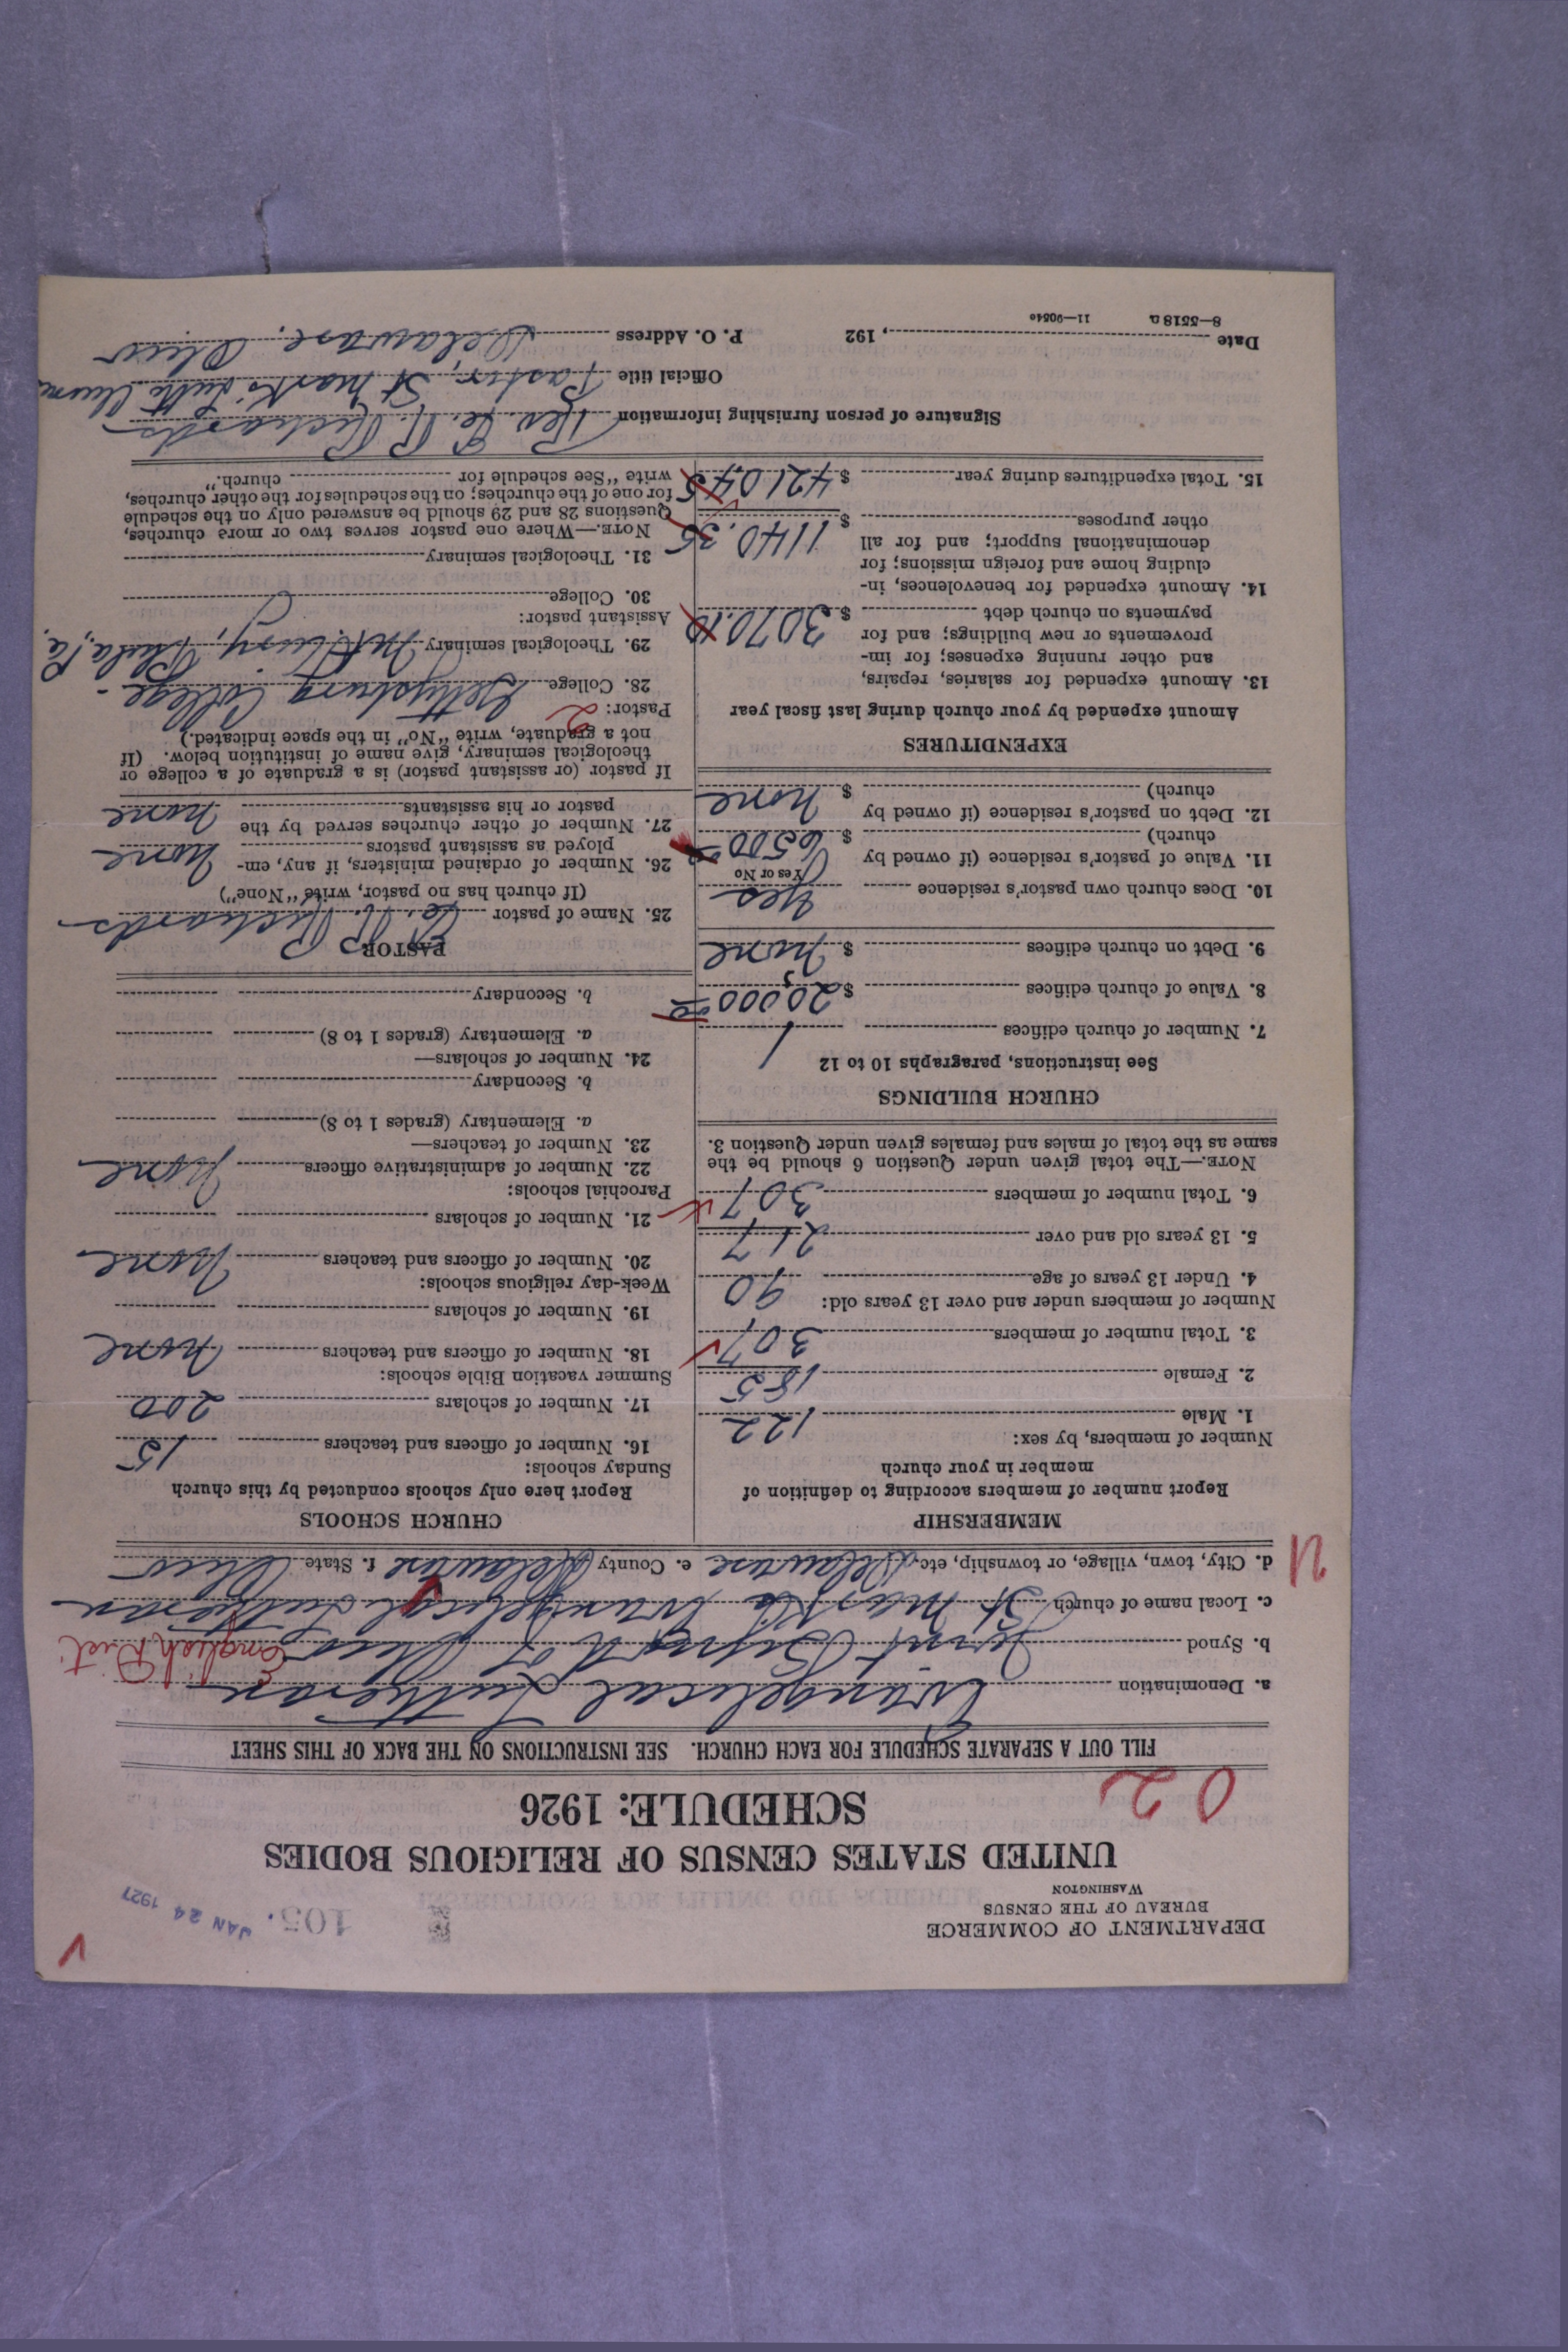 DEPARTMENT OF COMMERCE
BUREAU OF THE CENSUS
WASHINGTON
105.
JAN 24 1927
UNITED STATES CENSUS OF RELIGIOUS BODIES
SCHEDULE: 1926
02
FILL OUT A SEPARATE SCHEDULE FOR EACH CHURCH. SEE INSTRUCTIONS ON THE BACK OF THIS SHEET
a. Denomination Evangelical Lutheran
b. Synod Joint Synod of Ohio English Dist
c. Local name of church St Mark's Evangelical Lutheran
d. City, town, village, or township, etc. Delaware e. County Delaware f. State Ohio
U
MEMBERSHIP
Report number of members according to definition of
member in your church
Number of members, by sex:
1. Male 122
2. Female 185
3. Total number of members 307
Number of members under and over 13 years old:
4. Under 13 years of age 90
5. 13 years old and over 217
6. Total number of members 307
NOTE.—The total given under Question 6 should be the
same as the total of males and females given under Question 3.
CHURCH BUILDINGS
See instructions, paragraphs 10 to 12
7. Number of church edifices 1
8. Value of church edifices $ 20,000 00
9. Debt on church edifices $ none
10. Does church own pastor's residence yes
Yes or No
11. Value of pastor's residence (if owned by
church) $ 6500 00
12. Debt on pastor's residence (if owned by
church) $ none
EXPENDITURES
Amount expended by your church during last fiscal year
13. Amount expended for salaries, repairs,
and other running expenses; for im-
provements or new buildings; and for
payments on church debt $ 3070.10
14. Amount expended for benevolences, in-
cluding home and foreign missions; for
denominational support; and for all
other purposes $ 1140.35
15. Total expenditures during year $ 4210.45
CHURCH SCHOOLS
Report here only schools conducted by this church
Sunday schools:
16. Number of officers and teachers 15
17. Number of scholars 200
Summer vacation Bible schools:
18. Number of officers and teachers none
19. Number of scholars
Week-day religious schools:
20. Number of officers and teachers none
21. Number of scholars
Parochial schools:
22. Number of administrative officers none
23. Number of teachers—
a. Elementary (grades 1 to 8)
b. Secondary
24. Number of scholars—
a. Elementary (grades 1 to 8)
b. Secondary
PASTOR
25. Name of pastor R. Richards
(If church has no pastor, write "None")
26. Number of ordained ministers, if any, em-
ployed as assistant pastors none
27. Number of other churches served by the
pastor or his assistants none
If pastor (or assistant pastor) is a graduate of a college or
theological seminary, give name of institution below. (If
not a graduate, write "No" in the space indicated.)
Pastor: 2
28. College Gettysburg College -
29. Theological seminary Mt. Airy, Phila, Pa.
Assistant pastor:
30. College
31. Theological seminary
NOTE.—Where one pastor serves two or more churches,
Questions 28 and 29 should be answered only on the schedule
for one of the churches; on the schedules for the other churches,
write "See schedule for church."
Signature of person furnishing information Rev. R. Richards
Official title Pastor, St Mark's Luth Church
Date , 192
P. O. Address Delaware, Ohio
8—5518 a 11—9054o